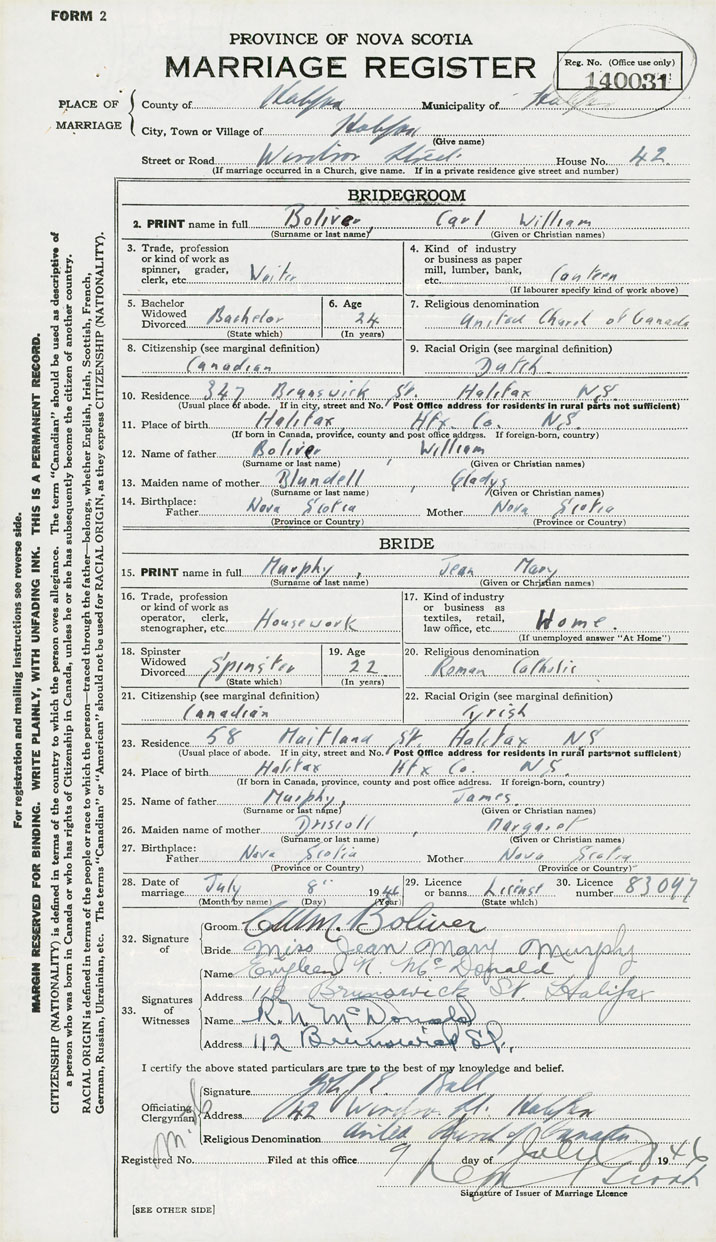 FORM 2
PROVINCE OF NOVA SCOTIA
MARRIAGE REGISTER
Reg. No. (Office use only)
140031
PLACE OF MARRIAGE
County of Halifax Municipality of Halifax
City, Town or Village of Halifax
(Give name)
Street or Road Windsor Street House No. 42.
(If marriage occurred in a Church, give name. If in a private residence give street and number)
BRIDEGROOM
2. PRINT name in full Boliver, Carl William
(Surname or last name) (Given or Christian names)
3. Trade, profession or kind of work as spinner, grader, clerk, etc. Waiter
4. Kind of industry or business as paper mill, lumber, bank, etc. Canteen
(If labourer specify kind of work above)
5. Bachelor Widowed Divorced Bachelor
(State which)
6. Age 24
(In years)
7. Religious denomination
United Church of Canada
8. Citizenship (see marginal definition)
Canadian
9. Racial Origin (see marginal definition)
Dutch.
10. Residence 347 Brunswick St. Halifax N.S.
(Usual place of abode. If in city, street and No. Post Office address for residents in rural parts not sufficient)
11. Place of birth Halifax Hfx. Co. N.S.
(If born in Canada, province, county and post office address. If foreign-born, country)
12. Name of father Boliver, William
(Surname or last name) (Given or Christian names)
13. Maiden name of mother Blundell, Gladys
(Surname or last name) (Given or Christian names)
14. Birthplace:
Father Nova Scotia Mother Nova Scotia
(Province or Country) (Province or Country)
BRIDE
15. PRINT name in full Murphy, Jean Mary
(Surname or last name) (Given or Christian names)
16. Trade, profession or kind of work as operator, clerk, stenographer, etc. Housework
17. Kind of industry or business as textiles, retail, law office, etc. Home.
(If unemployed answer "At Home")
18. Spinster Widowed Divorced Spinster
(State which)
19. Age 22
(In years)
20. Religious denomination
Roman Catholic
21. Citizenship (see marginal definition)
Canadian
22. Racial Origin (see marginal definition)
Irish
23. Residence 58 Maitland St. Halifax N.S.
(Usual place of abode. If in city, street and No. Post Office address for residents in rural parts not sufficient)
24. Place of birth Halifax Hfx Co. N.S.
(If born in Canada, province, county and post office address. If foreign-born, country)
25. Name of father Murphy, James.
(Surname or last name) (Given or Christian names)
26. Maiden name of mother Driscoll, Margaret
(Surname or last name) (Given or Christian names)
27. Birthplace:
Father Nova Scotia Mother Nova Scotia
(Province or Country) (Province or Country)
28. Date of marriage July 8" 1946
(Month by name) (Day) (Year)
29. Licence or banns License
(State which)
30. Licence number 83097
32. Signature of
Groom Boliver
Bride Miss Jean Mary Murphy
33. Signatures of Witnesses
Name N. McDonald
Address 112 Brunswick St. Halifax
Name R. N. McDonald
Address 112 Brunswick St.,
I certify the above stated particulars are true to the best of my knowledge and belief.
Officiating Clergyman
Signature Ball
Address 42 Windsor St. Halifax
Religious Denomination United Church of Canada
Registered No. Filed at this office 9 day of July 1946
Signature of Issuer of Marriage Licence
[SEE OTHER SIDE]
For registration and mailing instructions see reverse side.
MARGIN RESERVED FOR BINDING. WRITE PLAINLY, WITH UNFADING INK. THIS IS A PERMANENT RECORD.
CITIZENSHIP (NATIONALITY) is defined in terms of the country to which the person owes allegiance. The term "Canadian" should be used as descriptive of
a person who was born in Canada or who has rights of Citizenship in Canada, unless he or she has subsequently become the citizen of another country.
RACIAL ORIGIN is defined in terms of the people or race to which the person—traced through the father—belongs, whether English, Irish, Scottish, French,
German, Russian, Ukrainian, etc. The terms "Canadian" or "American" should not be used for RACIAL ORIGIN, as they express CITIZENSHIP (NATIONALITY).